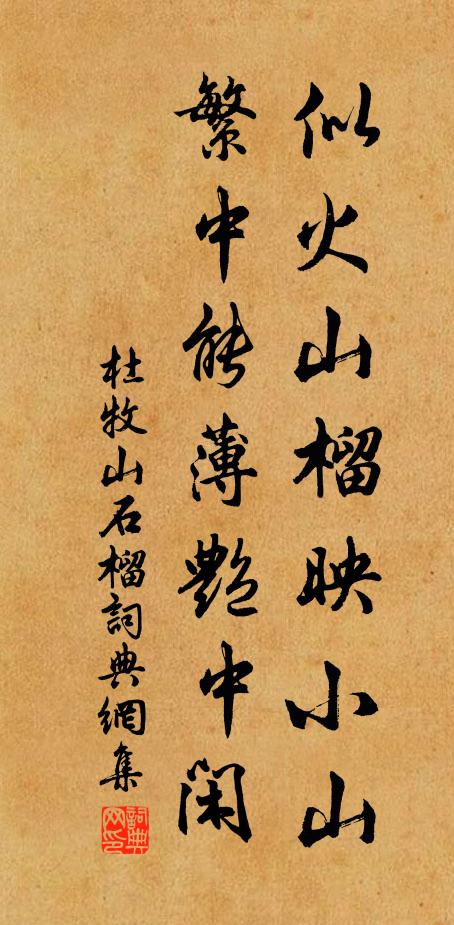 似火山榴映小山
繁中能薄艷中閑
杜牧山石榴詞典網集
詞典网印